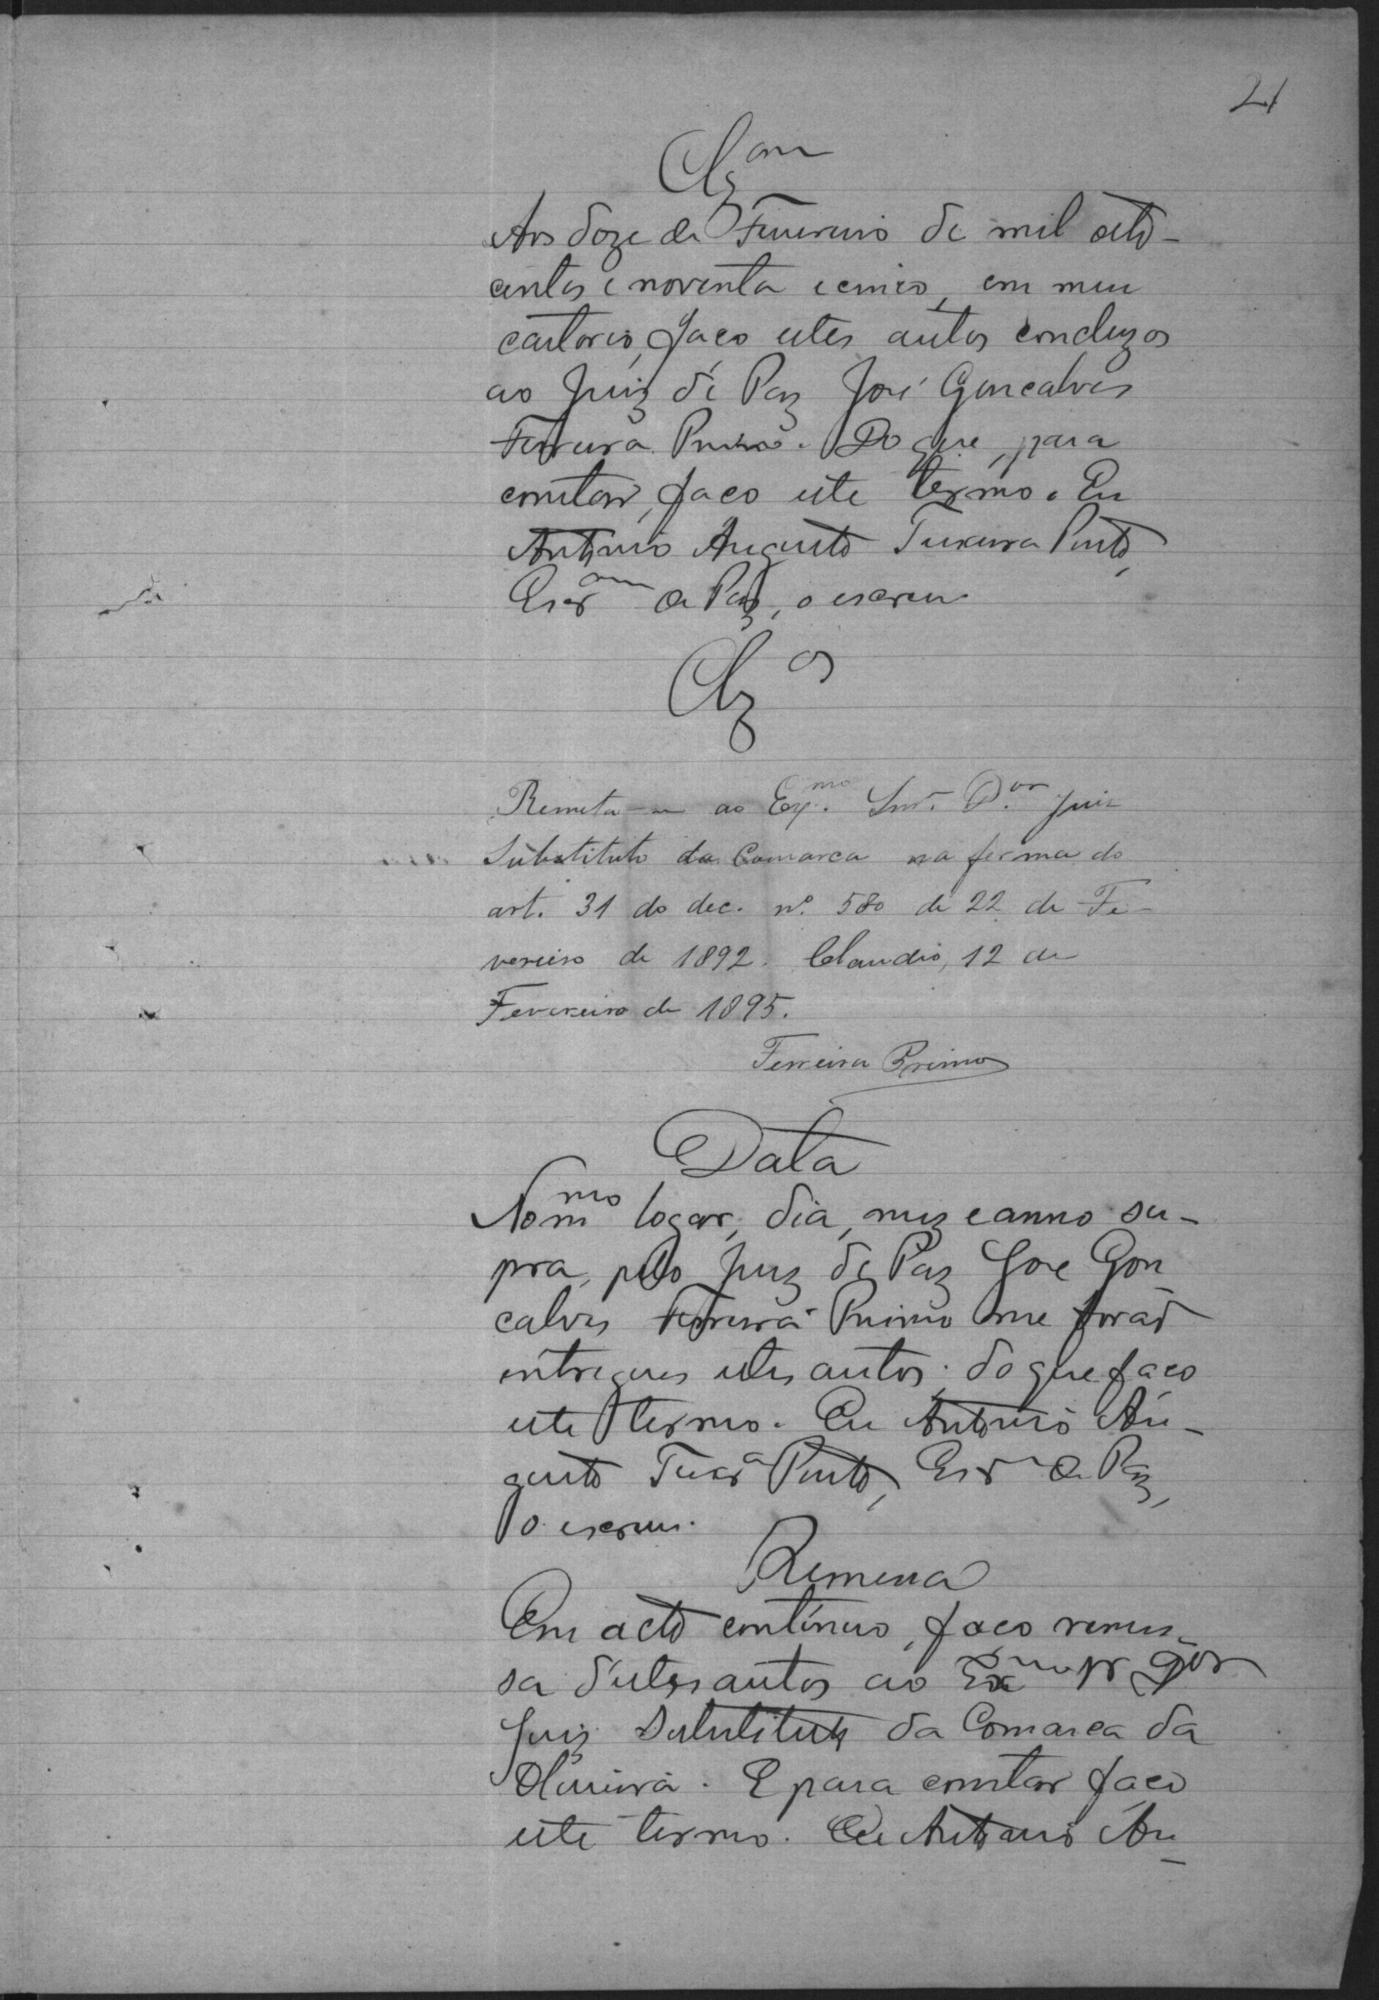 21
Clzam
Aos doze de Fevereiro de mil oito-
centos e noventa e cinco, em meu
cartorio, faço estes autos concluzos
ao Juiz de Paz José Gonçalves
Ferreira Primo. Do que, para
constar, faço este termo. Eu
Antonio Augusto Teixeira Pinto,
Escram de Paz, o escrevi
Clzos
Remeta-se ao Exmo. Snr. Dor. Juiz
Substituto da Comarca na forma do
art. 31 do dec. nº. 580 de 22 de Fe-
vereiro de 1892. Claudio, 12 de
Fevereiro de 1895.
Ferreira Primo
Data
No mmo logar, dia, mez e anno su-
pra, pelo Juiz de Paz José Gon
calves Ferreira Primo me forão
entregues estes autos; do que faço
este termo. Eu Antonio Au-
gusto Teixra Pinto, Escr de Paz,
o escrevi.
Remessa
Em acto continuo, faço remes-
sa d'estes autos ao Exmo Sr Dor
Juiz Substituto da Comarca da
Oliveira. E para constar faço
este termo. Eu Antonio Au-